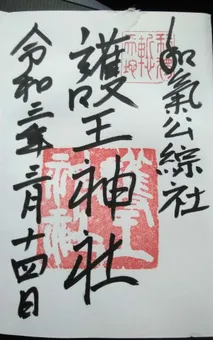 和氣公綜社
護王神社
令和三年三月十四日
護王神社